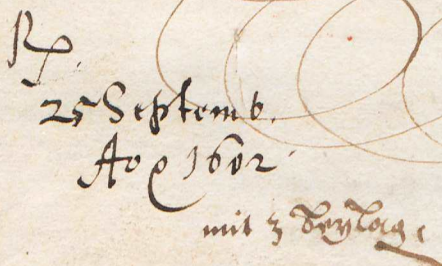 Rp.
25 Septemb.
Ao 1602.
mit 3 beylage